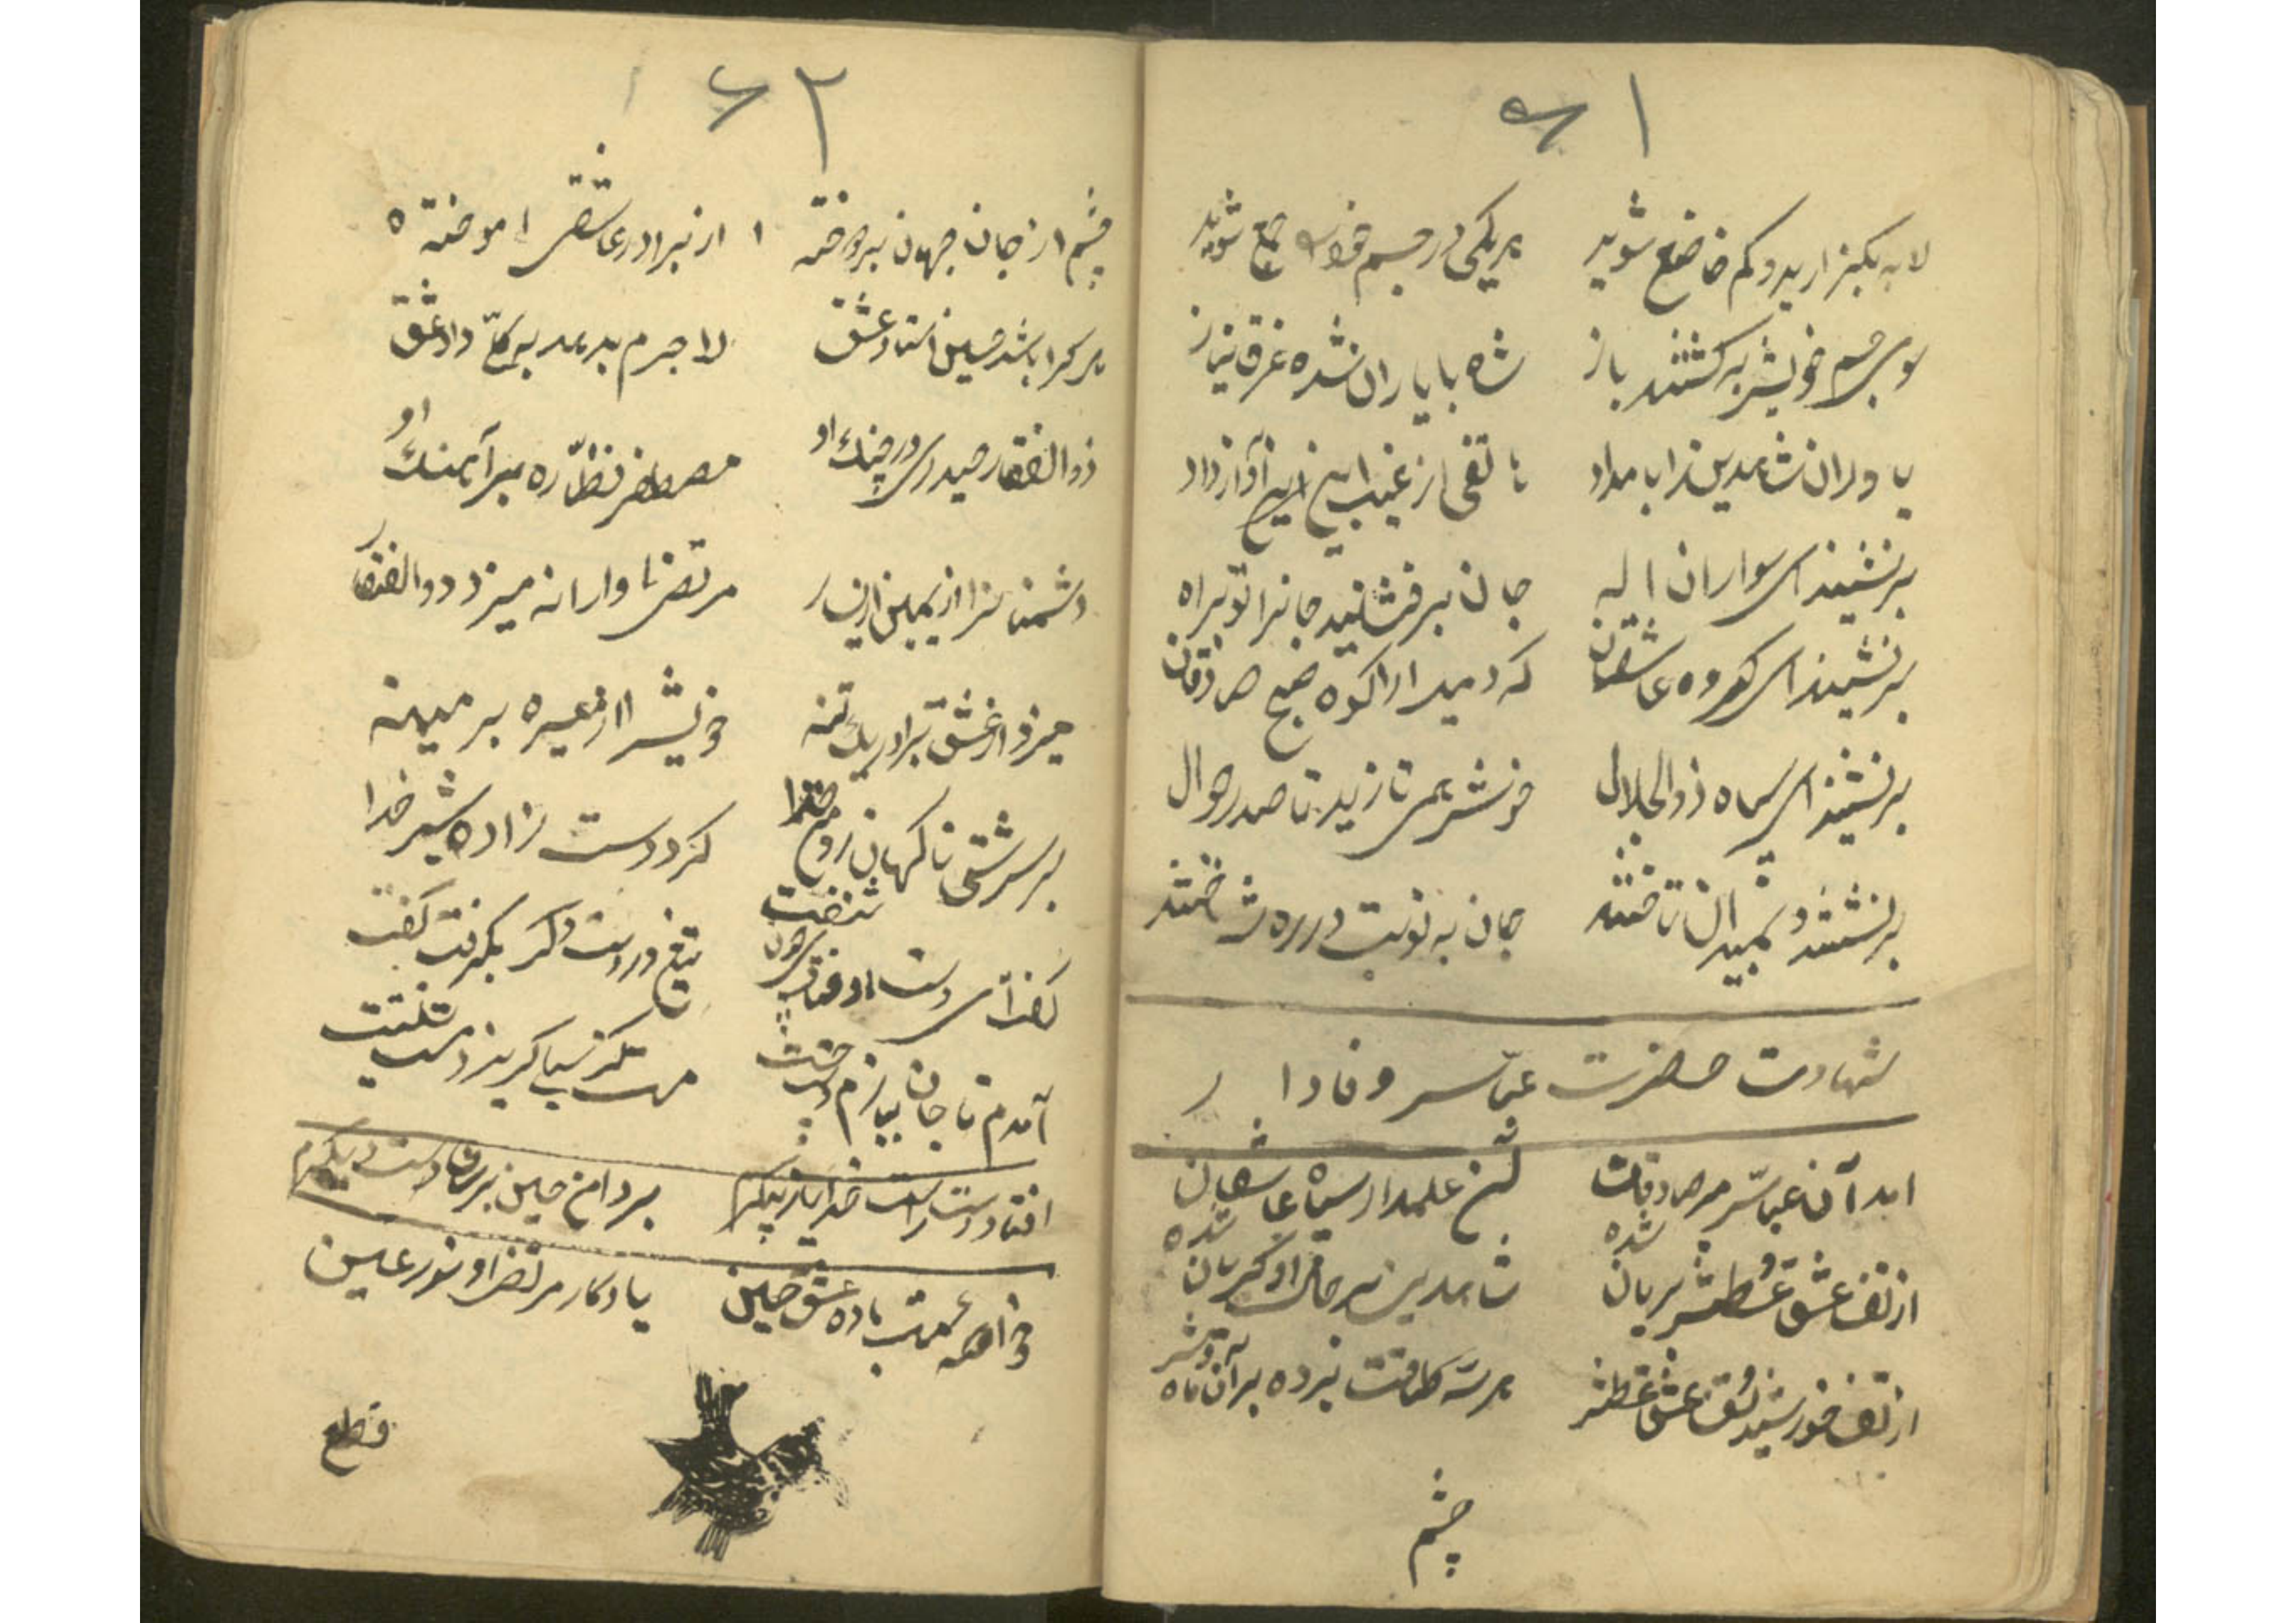 ۶۱
لابه بگذارید و کم خاضع شوید هر یکی در جسم خود جمع شوید
سوی جسم خویش برگشتند باز شاه با یاران شده غرق نیاز
یاوران شاهدین را بامداد هاتفی از غیب این آواز داد
برنشینید ای سواران اله جان برفشانید جانرا تو براه
برنشینید ای گروه عاشقان که دمید از کوه صبح صادقان
برنشینید ای سپاه ذوالجلال خوش همی تازید تا صدر وصال
برنشستند و بمیدان تاختند جان به نوبت در ره شه باختند
شهادت حضرت عباس وفادار
آمد آن عباس میر صادقان آن علمدار سپاه عاشقان
از تف عشق و عطش بریان شده شاهدین بر حال او گریان شده
از تف خورشید و تف عشق و عطش هر سه طاقت برده بر آن ماه وش
چشم
۶۲
چشم از جان جهان بردوخته از برادر عاشقی آموخته
هر کرا باشد حسین استاد عشق لاجرم بدهد به کل داد عشق
ذوالفقار حیدری در چنگ او مصطفی نظاره بر آهنگ او
دشمنان را از یمین و از یسار مرتضی وارانه میزد ذوالفقار
میزد از عشق برادر یک تنه خویش را از میسره بر میمنه
بر سرشتی ناگهان روی خطا کرد دست زاده شیر خدا
گفت ای دست تیغ در دست دگر بگرفت گفت
آمدم تا جان ببازم دست چیست مست کز سیلی گریزد مست نیست
افتاد دست راست خدایا ز پیکرم بر دامن حسین برسان دست دیگرم
خواهمت باده عشق حسین یادگار مرتضی و نور عین
قطع